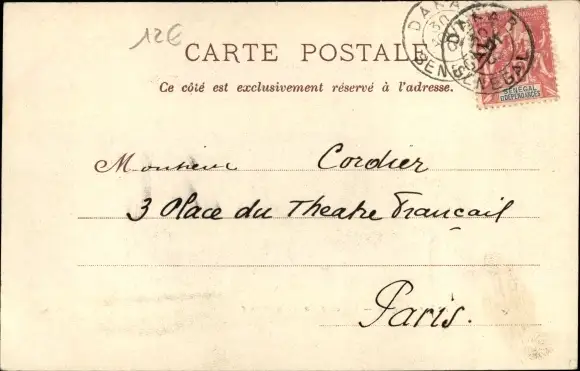 12€
CARTE POSTALE
Ce côté est exclusivement réservé à l'adresse.
DAKAR
SENEGAL
DAKAR
SENEGAL
SÉNÉGAL
ET DÉPENDANCES
Monsieur Cordier
3 Place du Theatre Françail
Paris.